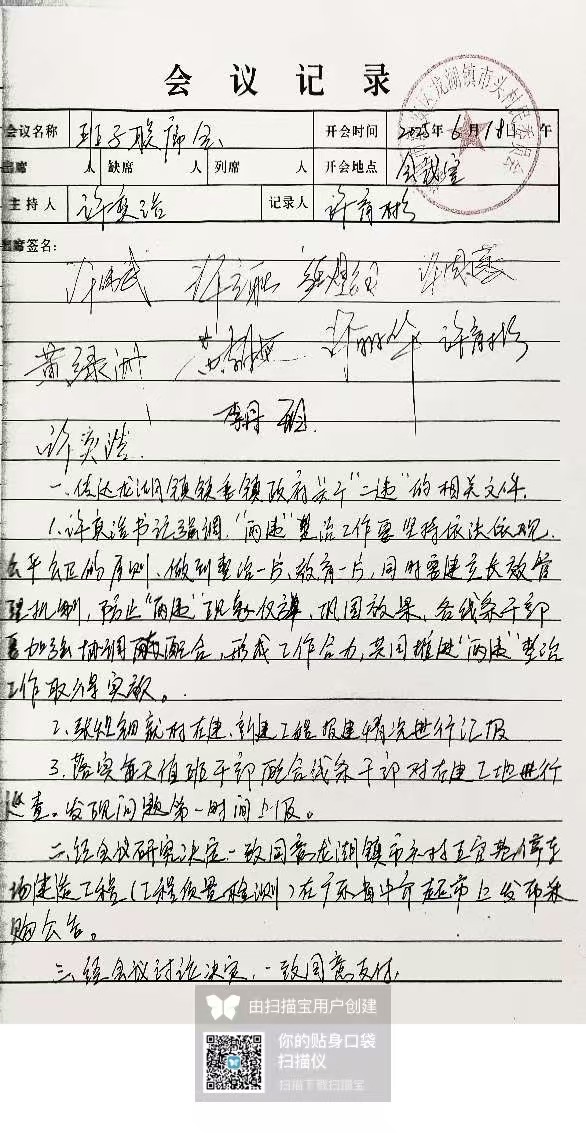 会议记录
龙湖镇市头村民委员会
会议名称 班子联席会 开会时间 2025年6月18日 午
出席 人 缺席 人 列席 人 开会地点 会议室
主持人 许 记录人 许育彬
出席签名:
黄绿洲 许育彬
一、传达龙湖镇镇委镇政府关于“二违”的相关文件。
1、许 书记强调,“两违”整治工作要坚持依法依规、
公平公正的原则、做到整治一片、教育一片,同时要建立长效管
理机制,防止“两违”现象反弹、巩固效果、各线条干部
要加强协调配合,形成工作合力,共同推进“两违”整治
工作取得实效。
2、 就村在建、新建工程报建情况进行汇报
3、落实每天值班干部配合线条干部对在建工地进行
巡查。发现问题第一时间上报。
二、经会议研究决定一致同意龙湖镇市头村 停车
场建造工程(工程质量检测)在广东省中介超市上发布采
购公告。
三、经会议讨论决定,一致同意支付
由扫描宝用户创建
你的贴身口袋
扫描仪
扫描下载扫描宝